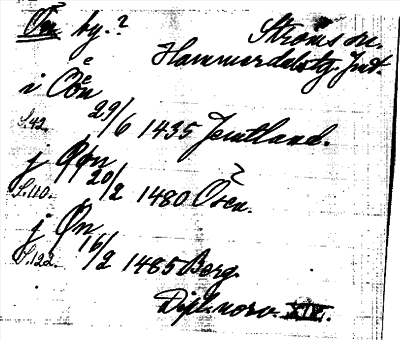 Ön by.? Ströms sn.
Hammerdals tg. Jmt.
i Oøn
S.42. 29/6 1435 Jemtland.
j Øøn
S.110. 20/2 1480 Ösen.?
j Øn
S.122. 16/2 1485 Borg.
Dipl. norv. XIV.